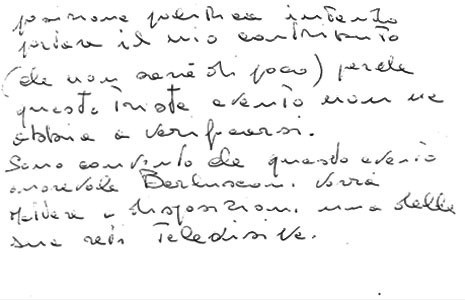 posizione politica intendo
portare il mio contributo
(che non sarà di poco) perche
questo triste evento non ne
abbia a verificarsi.
Sono convinto che questo evento
onorevole Berlusconi, vorrà
mettere a disposizioni, una delle
sue reti Teledisive.